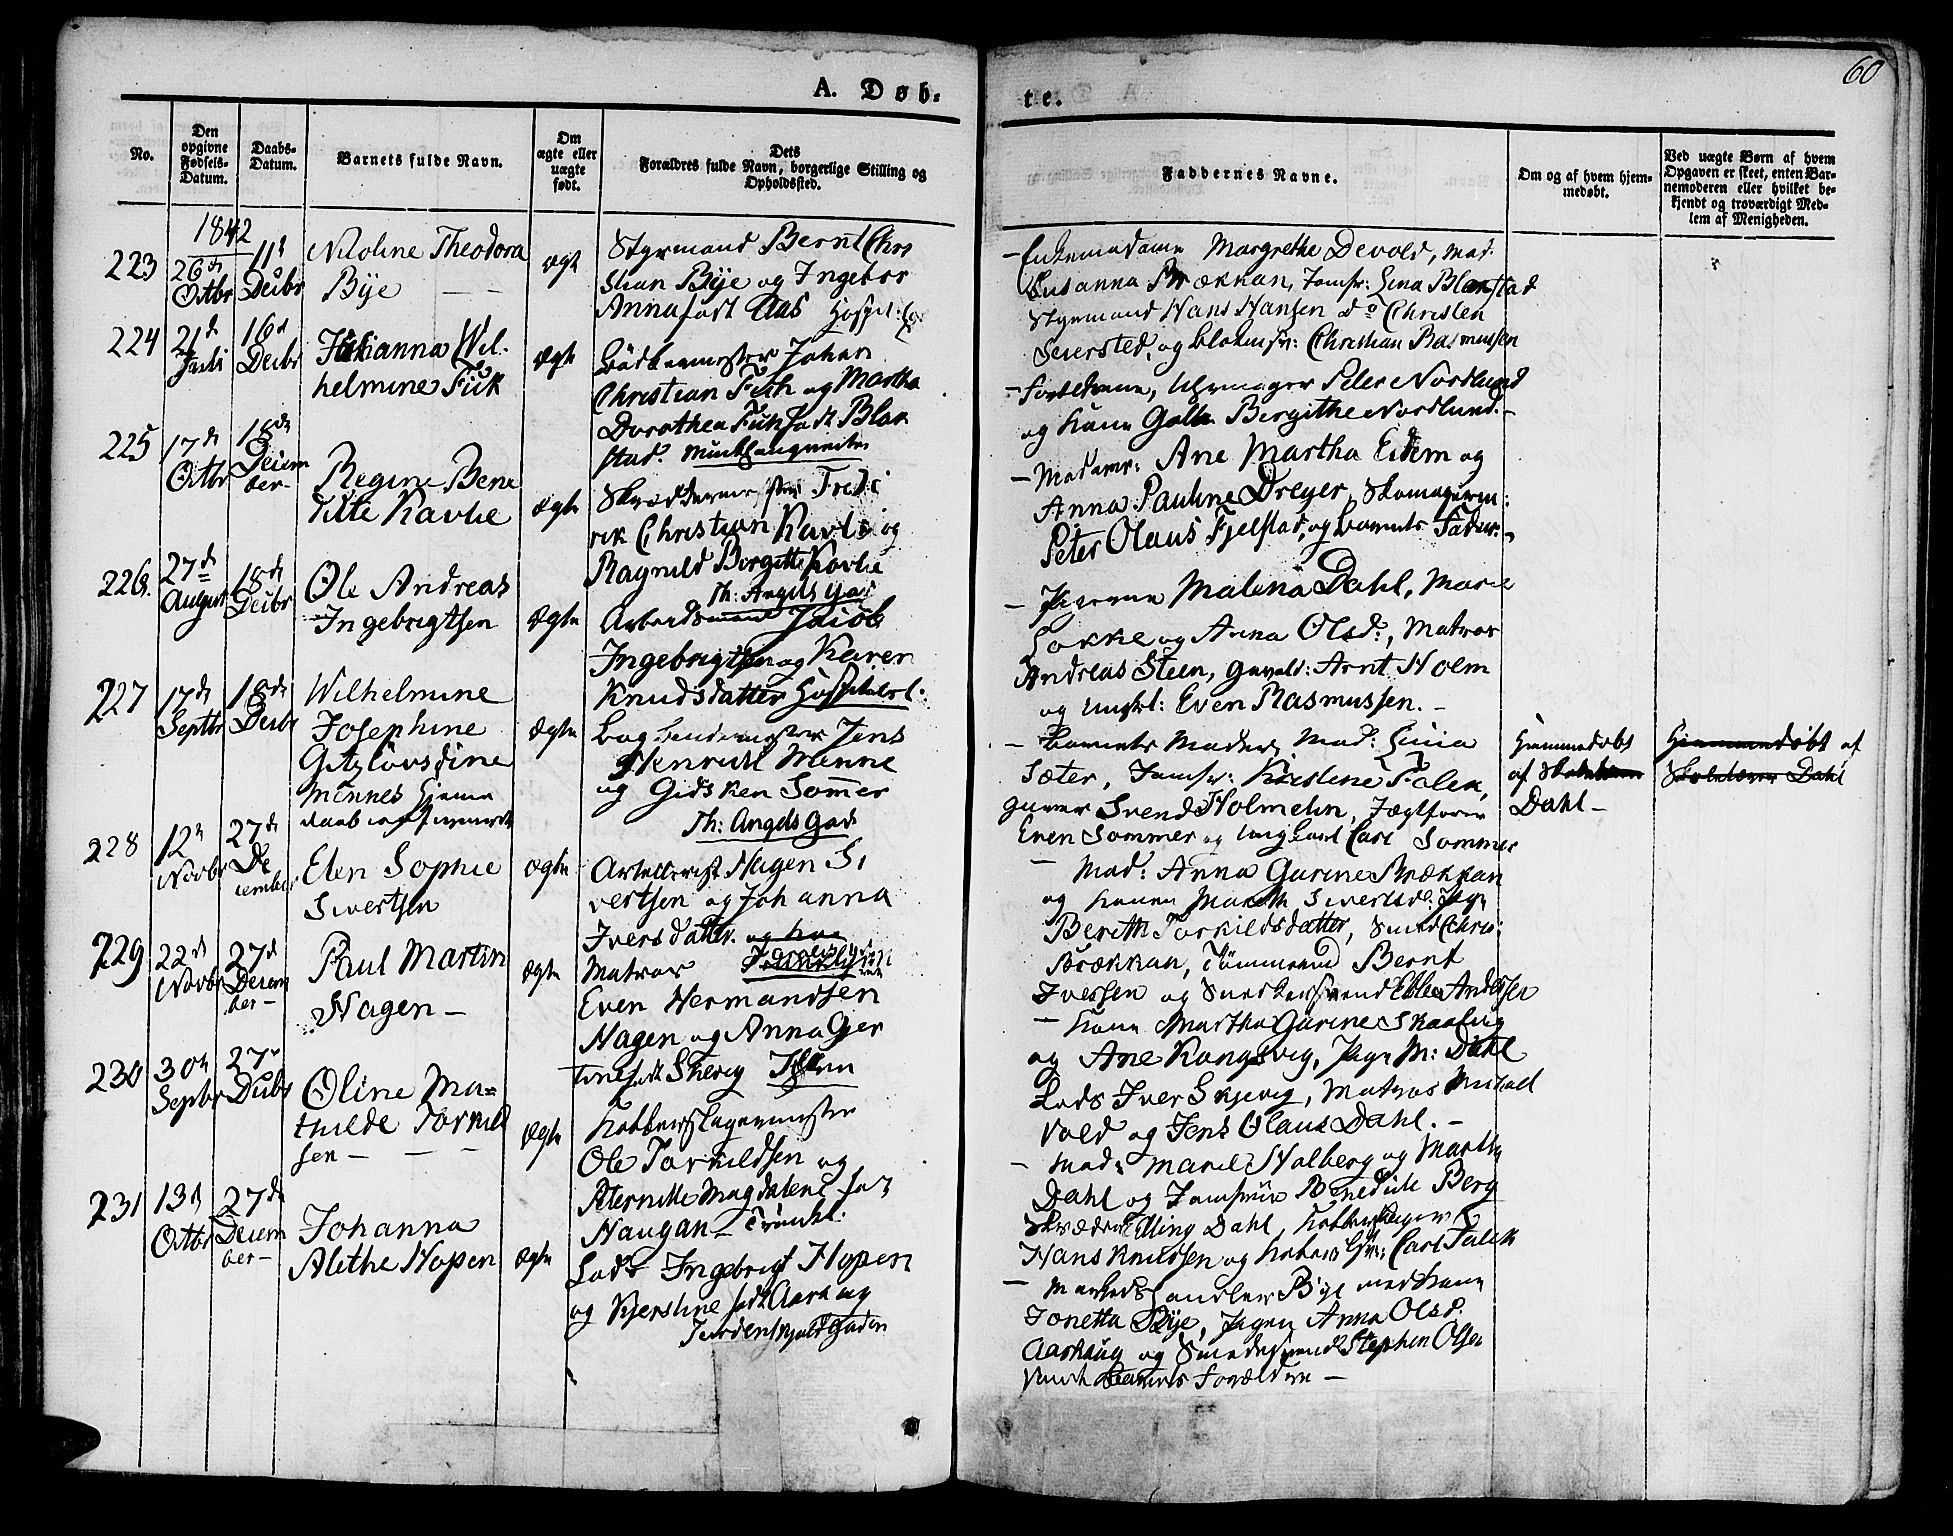 60
A. Døb-
te.
No.
Den opgivne Fødsels-Datum.
Daabs-Datum.
Barnets fulde Navn.
Om ægte eller uægte født.
Dets Forældres fulde Navn, borgerlige Stilling og Opholdsted.
Faddernes Navne.
Om og af hvem hjem-medøbt.
Ved uægte Børn af hvem Opgaven er skeet, enten Bar-nemoderen eller hvilket be-kjendt og troværdigt Med-lem af Menigheden.
1842
223
26de Octbr
11te Decbr
Nicoline Theodora
Bÿe
ægte
Styrmand Bernt Chri
stian Bÿe og Ingebor
Anna født Aas Hospit:
Margrethe Devold, Mad.
Susanna Brækkan, Jomfr: Lina Blakstad
Styrmand Hans Hansen do Christen
Seiersted, og Christian Rasmussen
224
21de Juli
16de Decbr
Johanna Wil-
helmine Fick
Ægte
Bødkermester Johan
Christian Fick og Martha
Dorothea Fick født Blak
stad.
Forældrene, Uhrmager Peter Nordlund
og Kone Bergithe Nordlund.-
225
17de Octbr
18de Decem
ber-
Regine Bene
dicte Kavlie
Ægte
Skræddermester Fride
rik Christian Kavli og
Ragnild Borgitte Kavlie
Th: Angels Gad
- Madamer: Ane Martha Eidem og
Anna Pauline Dreyer, Skomagerm:
Peter Olaus Fjelstad, og barnets Fader.-
226.
27de August
18de Decbr
Ole Andreas
Ingebrigtsen
Ægte
Arbeidsmand Jacob
Ingebrigtsen og Karen
Knudsdatter Hospitalsl.
- Pigerne Malena Dahl, Marie
Løkke og Anna Olsd:, Matros
Andreas Steen, Gevald: Arnt Holm
og Ungkl: Even Rasmussen.-
227
17de Septbr
18de Decbr
Wilhelmine
Josephine
Minnes hjemme
daab
Ægte
Bogbindermester Jens
Henrich Minne
og Gidsken Sommer
Th: Angels Gad
- Barnets Moder, Mad:
Sæter, Jomfr: Kirstine Falck,
Svend Holmelin, Jægtfører
Even Sommer og Ungkarl Carl Sommer
Hjemmedøbt
af Skolelærer
Dahl-
Hjemmedøbt af
Skolelærer Dahl
228
12te Novbr
27de De
cember
Elen Sophie
Sivertsen
Ægte
Artillerist Hagen Si
vertsen og Johanna
Iversdatter.
- Mad: Anna Gurine Brækkan
og Konen Mareth Sivertsd: Pige
Berith Torkildsdatter, Smed Chris:
Brækkan, Tømmermd Bernt
Iversen og Smedesvend Andersen
229
22de Novbr
27de Decem
ber-
Paul Martin
Hagen-
Ægte
Matros
Even Hermandsen
Hagen og Anna Ger
tine født Skevig Ihlen
- Kone Martha Gurine Skaalvig
og Ane Kongsvig, Pige M: Dahl
Lods Iver Skjevig, Matros Michael
Vold og Jens Olaus Dahl.-
230
30te Septbr
27de Decbr
Oline Ma-
thilde Torkild
sen-
Ægte
Kobberslagermester
Ole Torkildsen og
Pernille Magdalene fød
Haugan- Trondhl.
- Mad: Maren Holberg og Martha
Dahl og Jomfrue Benedicte Berg
Skræder Elling Dahl, Kobberslager
Hans Knudsen og Carl Falck
231
13de Octbr
27de Decem
ber-
Johanna
Alethe Hopen
Ægte
Lods Ingebrigt Hopen
og Kjerstine født Aarhaug
Tordenskjolds Gaden
- Bÿe med Kone
Jonetta Bÿe, Pigen Anna Olsd:
Aarhaug og Smedesvend Stephen Olsen
samt Barnets Forældre-